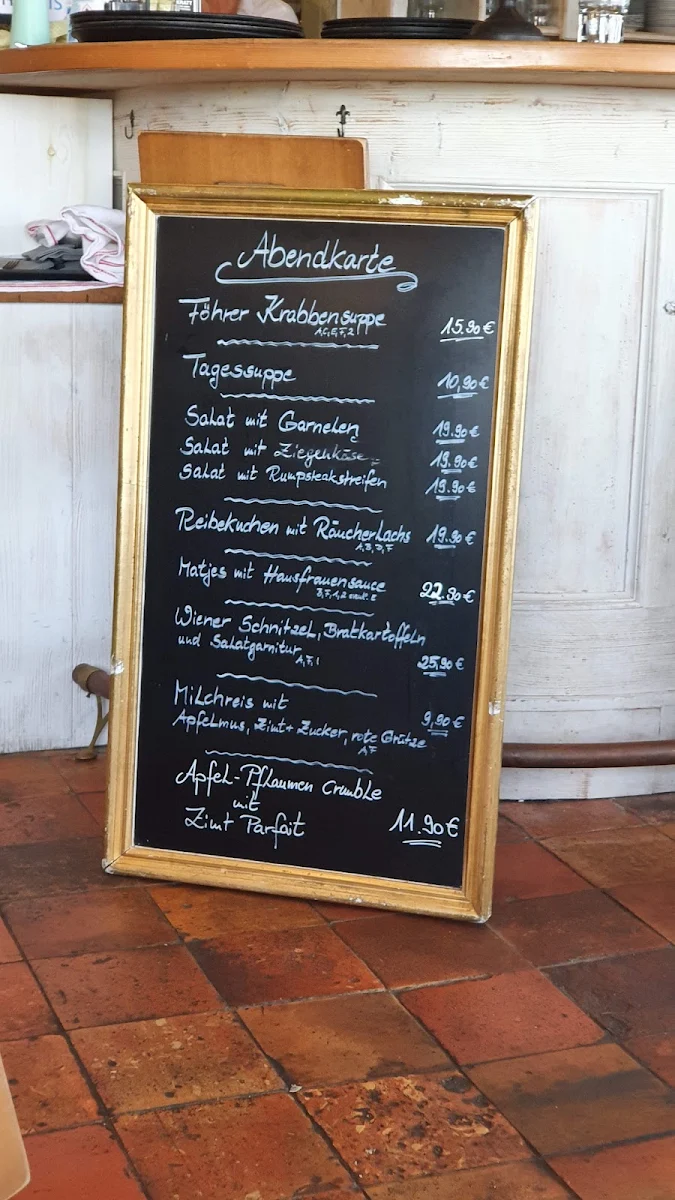 Abendkarte
Föhrer Krabbensuppe 15.90€
Tagessuppe 10,90€
Salat mit Garnelen 19.90€
Salat mit Ziegenkäse 19.90€
Salat mit Rumpsteakstreifen 19.90€
Reibekuchen mit Räucherlachs 19.90€
A, B, D, F
Matjes mit Hausfrauensauce 22.90€
Wiener Schnitzel, Bratkartoffeln
und Salatgarnitur 25,90€
A, F, 1
Milchreis mit 9,90€
Apfelmus, Zimt + Zucker, rote Grütze
A,F
Apfel-Pflaumen Crumble
mit
Zimt Parfait 11.90€